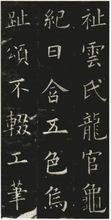 祉雲氏龍官龜
紀日含五色烏
趾頌不輟工筆